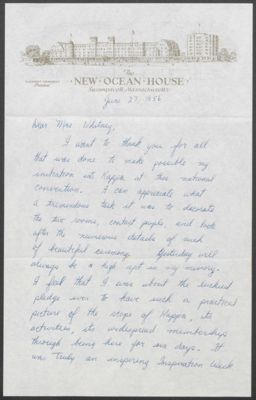 The
NEW · OCEAN · HOUSE
Swampscott, Massachusetts
President
June 27, 1956
Dear Mrs Whitney,
I want to thank you for all
that was done to make possible my
initiation into Kappa at this national
convention. I can appreciate what
a tremendous task it was to decorate
the two rooms, contact people, and look
after the numerous details of such
a beautiful ceremony. Yesterday will
always be a high spot in my memory.
I feel that I was about the luckiest
pledge ever to have such a practical
picture of the scope of Kappa, its
activities, its widespread membership
through being here for six days. It
was Truly an inspiring Inspiration Week